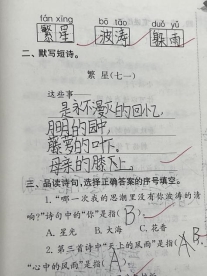 fán xīng bō tāo duǒ yǔ
繁星 波涛 躲雨
二、默写短诗。
繁 星(七一)
这些事——
是永不漫灭的回忆,
月明的园中,
藤萝的叶下,
母亲的膝下上。
三、品读诗句,选择正确答案的序号填空。
1.“哪一次我的思潮里没有你波涛的清
响?”诗句中的“你”是指( B )。
A. 星光 B. 大海 C. 花香
2. 第三首诗中“天上的风雨”是指( A ),
“心中的风雨”是指( B )。